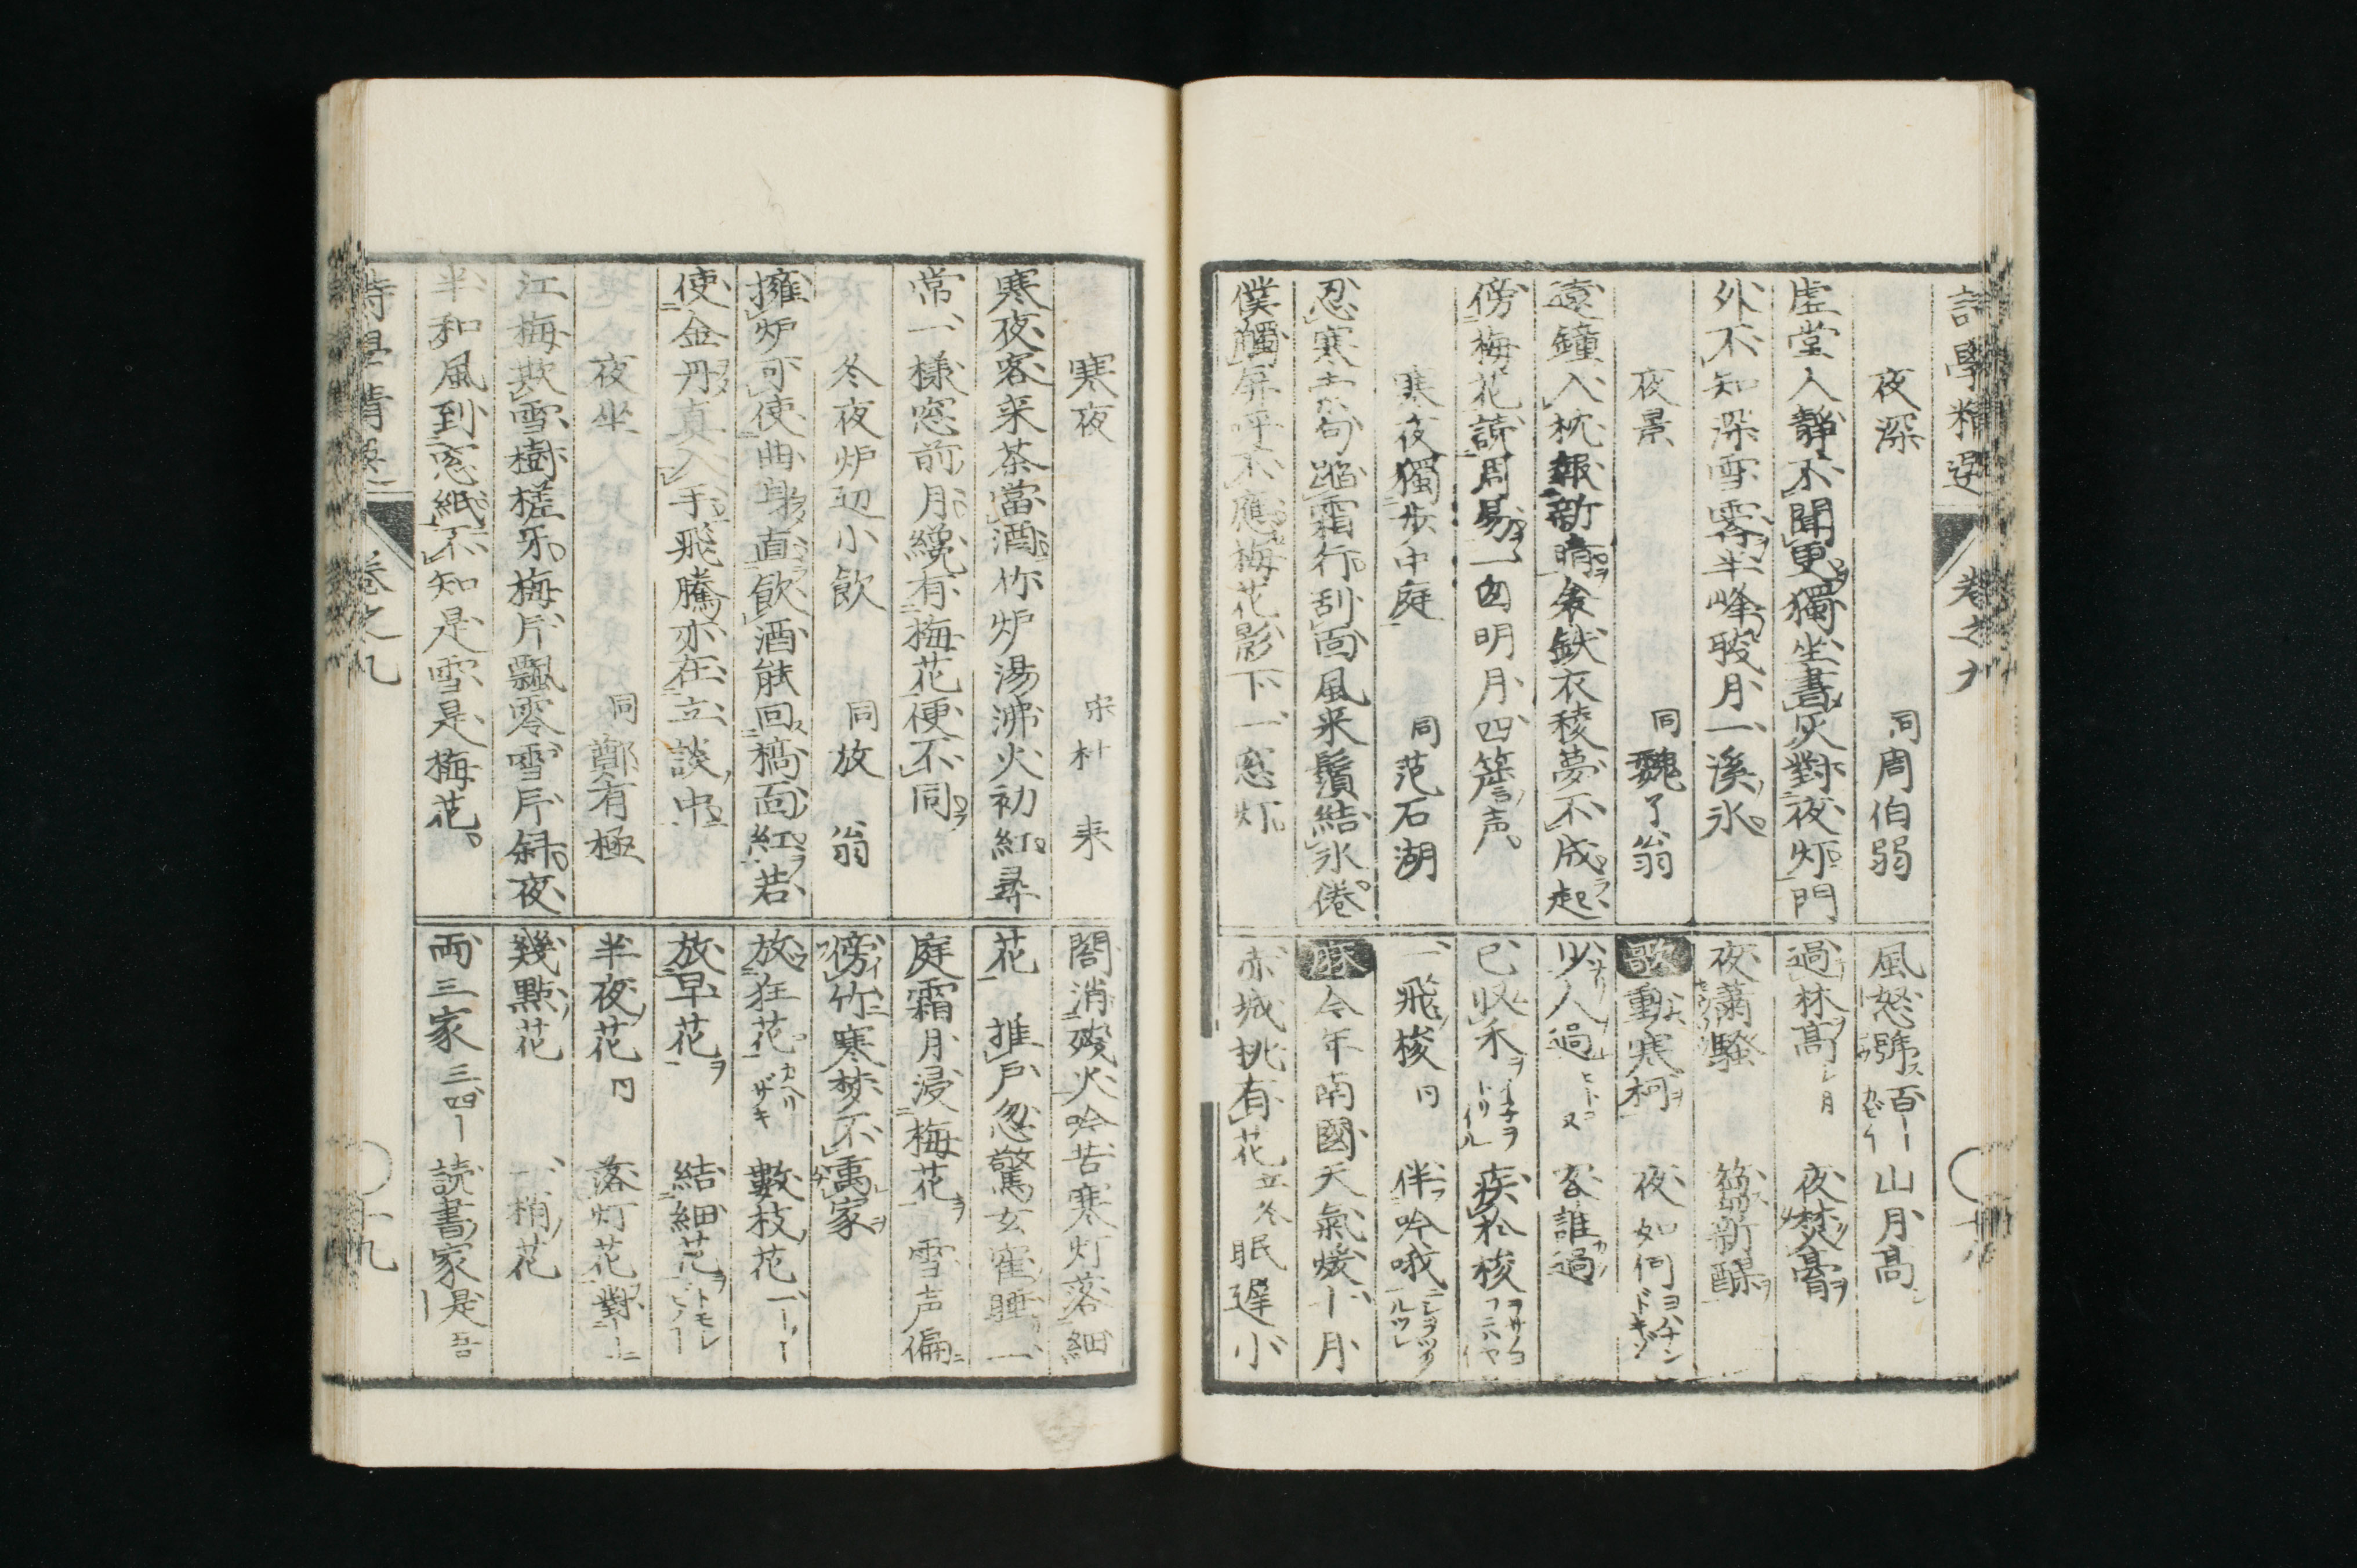 夜深　同周伯弱
虚堂人静不聞更獨坐書灰對夜灯門
外不知深雪霽半峰殘月一溪氷
夜景　同魏了翁
遠鐘入枕報新晴衾鉄衣稜夢不成起
傍梅花読周易一囱明月四簷声
寒夜獨歩中庭　同范石湖
忍寒索句踏霜行刮面風来鬚結氷倦
僕觸屏呼不應梅花影下一窓灯
風怒號百　山月高
過林髙　月　夜焚膏
夜蕭騒　蒭新醪
歌動寒柯　夜如何ヨハナンドキゾ
少人過　客誰過
已収禾　疾於梭
一飛梭　伴吟哦
豚今年南國天氣煖十月
赤城桃有花立冬眠遅小
詩學精選　卷之九
寒夜　宋杜耒
寒夜客来茶當酒竹炉湯沸火初紅尋
常一様窓前月纔有梅花便不同
冬夜炉辺小飲　同放翁
擁炉可使曲身直飲酒能回槁面紅若
使金丹真入手飛騰亦在立談中
夜坐　同鄭有極
江梅欺雪樹槎牙梅片飄零雪片斜夜
半和風到窓紙不知是雪是梅花
閤消殘火吟苦寒灯落細
花　推戸忽驚玄寉睡一
庭霜月浸梅花　雪声偏
傍竹寒梦不禹家
放狂花カヘリザキ　數枝花
放早花　結細花トモシ
半夜花　落灯花對
幾點花　一梢花
両三家三四　読書家是吾
詩學精選　卷之九　十九